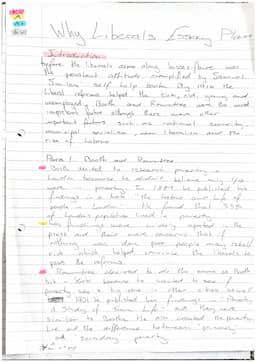 Why Liberals Essay Plan
Introduction
before the liberals came along laissez-faire was
the prevalent attitude exemplified by Samuel
Smiles self help book. By 1914 the
liberal reforms helped the sick, old, young and
unemployed. Booth and Rowntree were the most
important factor although there were other
important factors such as national security,
municipal socialism, new liberalism and the
rise of labour
Para 1 Booth and Rowntree
Booth decided to research poverty in
London because he didn't believe only 1/4
were in poverty. In 1889 he published his
findings in a book "the labour and life of
people in London". He found that 35%
of London's population lived in poverty
his findings were widely reported in the
press and there were concerns that if
nothing was done poor people may rebel
riot which helped convince the liberals to
pass the reforms.
Rowntree decided to do the same as Booth
but in York because he wanted to see if
poverty was a big issue in other cities as well
1901 he published his findings "Poverty
A Study of Town Life" and they were
similar to Booths. He also created the poverty
line and the difference between primary
and secondary poverty